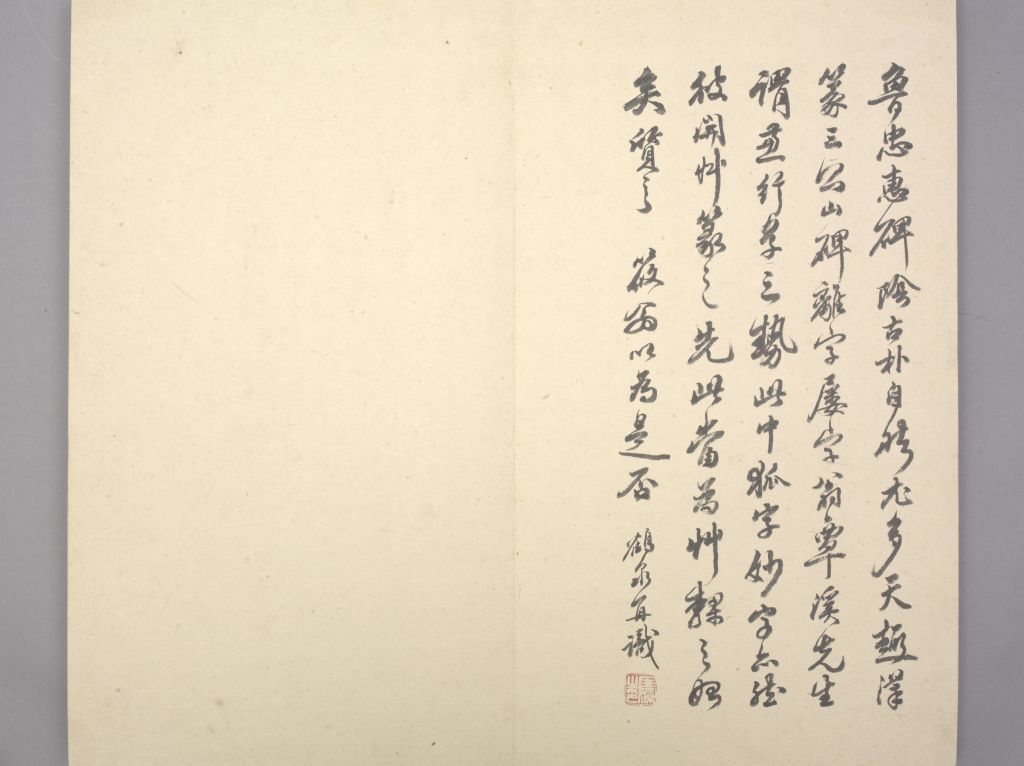 魯忠惠碑陰古朴自然尤多天趣漢
篆三公山碑離字屡字翁覃溪先生
謂兼行草三勢此中狐字妙字亦然
彼開艸篆之先此當為艸隸之始
矣質之 筱安以為是否
鶴泉再識